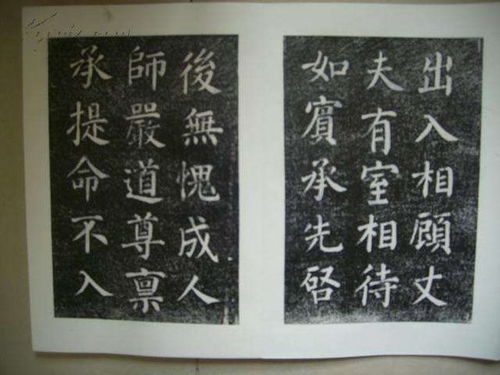 出入相顧丈
夫有室相待
如賓承先啓
後無愧成人
師嚴道尊禀
承提命不入